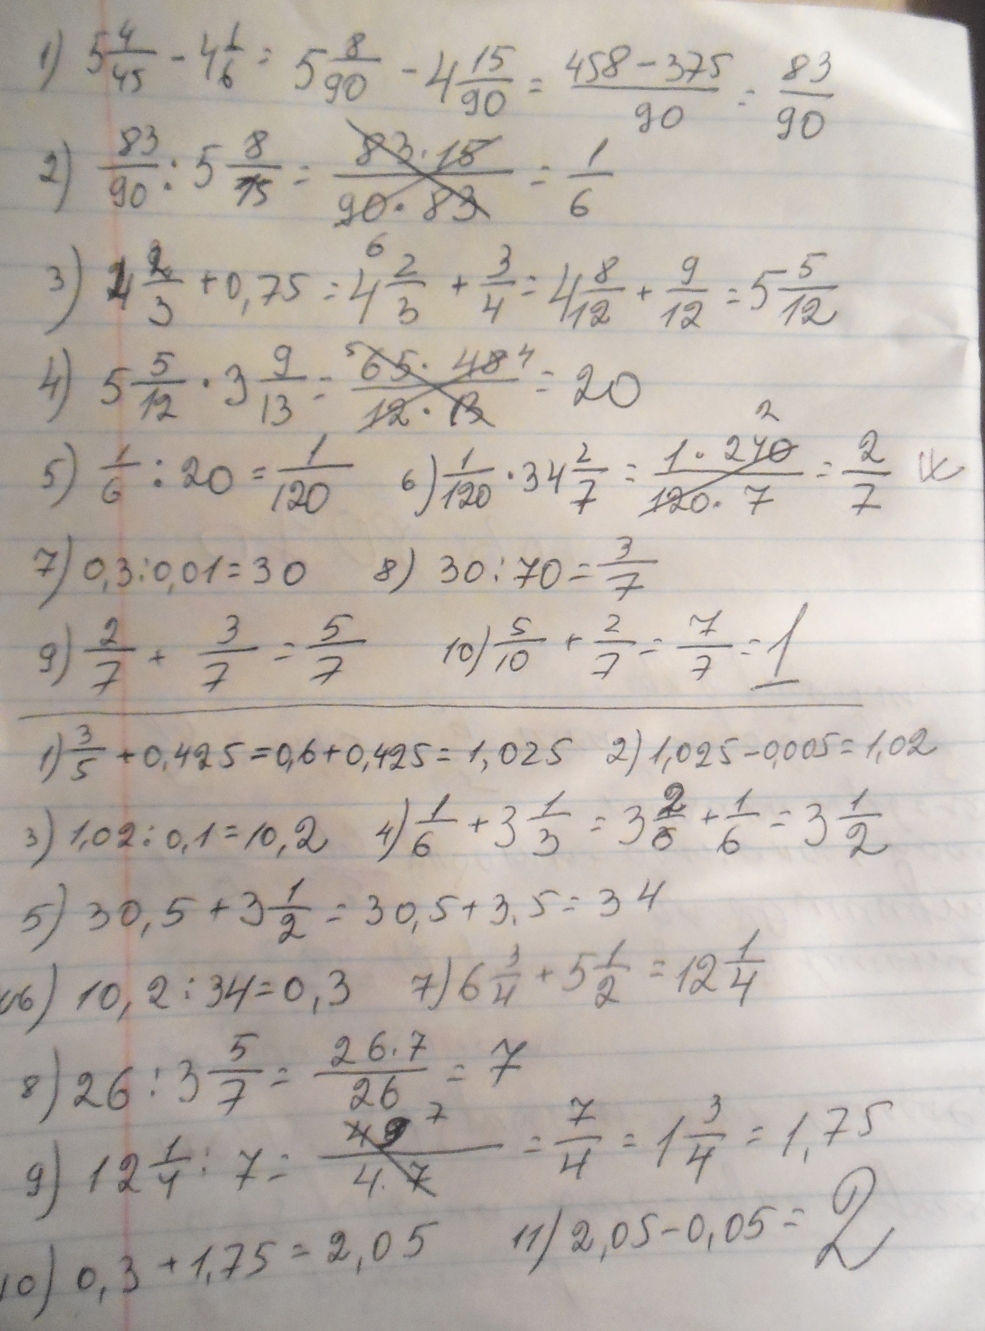 1) 5 4/45 - 4 1/6 = 5 8/90 - 4 15/90 = (458 - 375)/90 = 83/90
2) 83/90 : 5 8/15 = (83·15)/(90·83) = 1/6
3) 4 2/3 + 0,75 = 4 2/3 + 3/4 = 4 8/12 + 9/12 = 5 5/12
4) 5 5/12 · 3 9/13 = (65·48)/(12·13) = 20
5) 1/6 : 20 = 1/120 6) 1/120 · 34 2/7 = (1·240)/(120·7) = 2/7
7) 0,3:0,01=30 8) 30:70 = 3/7
9) 2/7 + 3/7 = 5/7 10) 5/10 + 2/7 = 7/7 = 1
1) 3/5 + 0,425 = 0,6 + 0,425 = 1,025 2) 1,025 - 0,005 = 1,02
3) 1,02 : 0,1 = 10,2 4) 1/6 + 3 1/3 = 3 2/6 + 1/6 = 3 1/2
5) 30,5 + 3 1/2 = 30,5 + 3,5 = 34
6) 10,2 : 34 = 0,3 7) 6 3/4 + 5 1/2 = 12 1/4
8) 26 : 3 5/7 = (26·7)/26 = 7
9) 12 1/4 : 7 = 49/(4·7) = 7/4 = 1 3/4 = 1,75
10) 0,3 + 1,75 = 2,05 11) 2,05 - 0,05 = 2